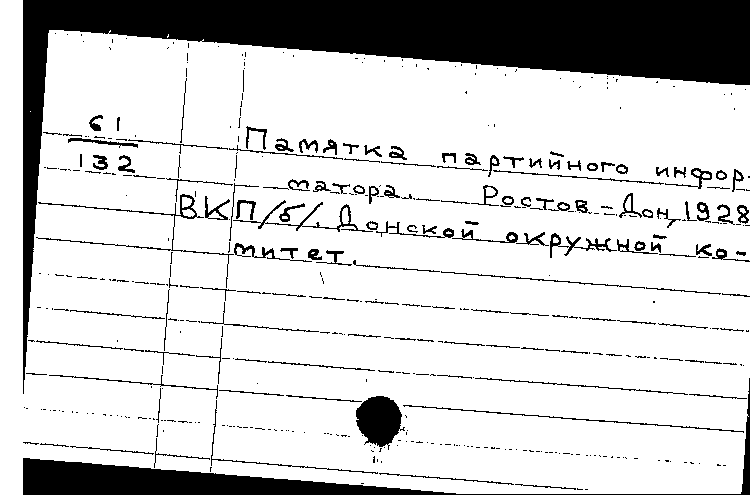 61
132
Памятка партийного инфор-
матора. Ростов-Дон, 1928
ВКП/б/. Донской окружной ко-
митет.